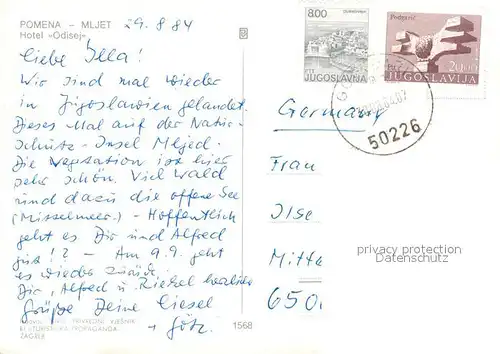 POMENA – MLJET 29.8.84
Hotel »Odisej«
Liebe Illa!
Wir sind mal wieder
in Jugoslawien gelandet.
Dieses Mal auf der Natur-
schutz-Insel Mljed.
Die Vegetation ist hier
sehr schön. Viel Wald
und dazu die offene See
(Mittelmeer). - Hoffentlich
geht es Dir und Alfred
gut!? - Am 9.9. geht
es wieder zurück.
Dir, Alfred u. herzliche
Grüße Deine Liesel
+ Götz.
PRIVREDNI VJESNIK
PROPAGANDA
ZAGREB
1568
8.00
JUGOSLAVIJA
Podgarić
20.00
JUGOSLAVIJA
50226
Germany
Frau
Ilse
Mitte
650
privacy protection
Datenschutz